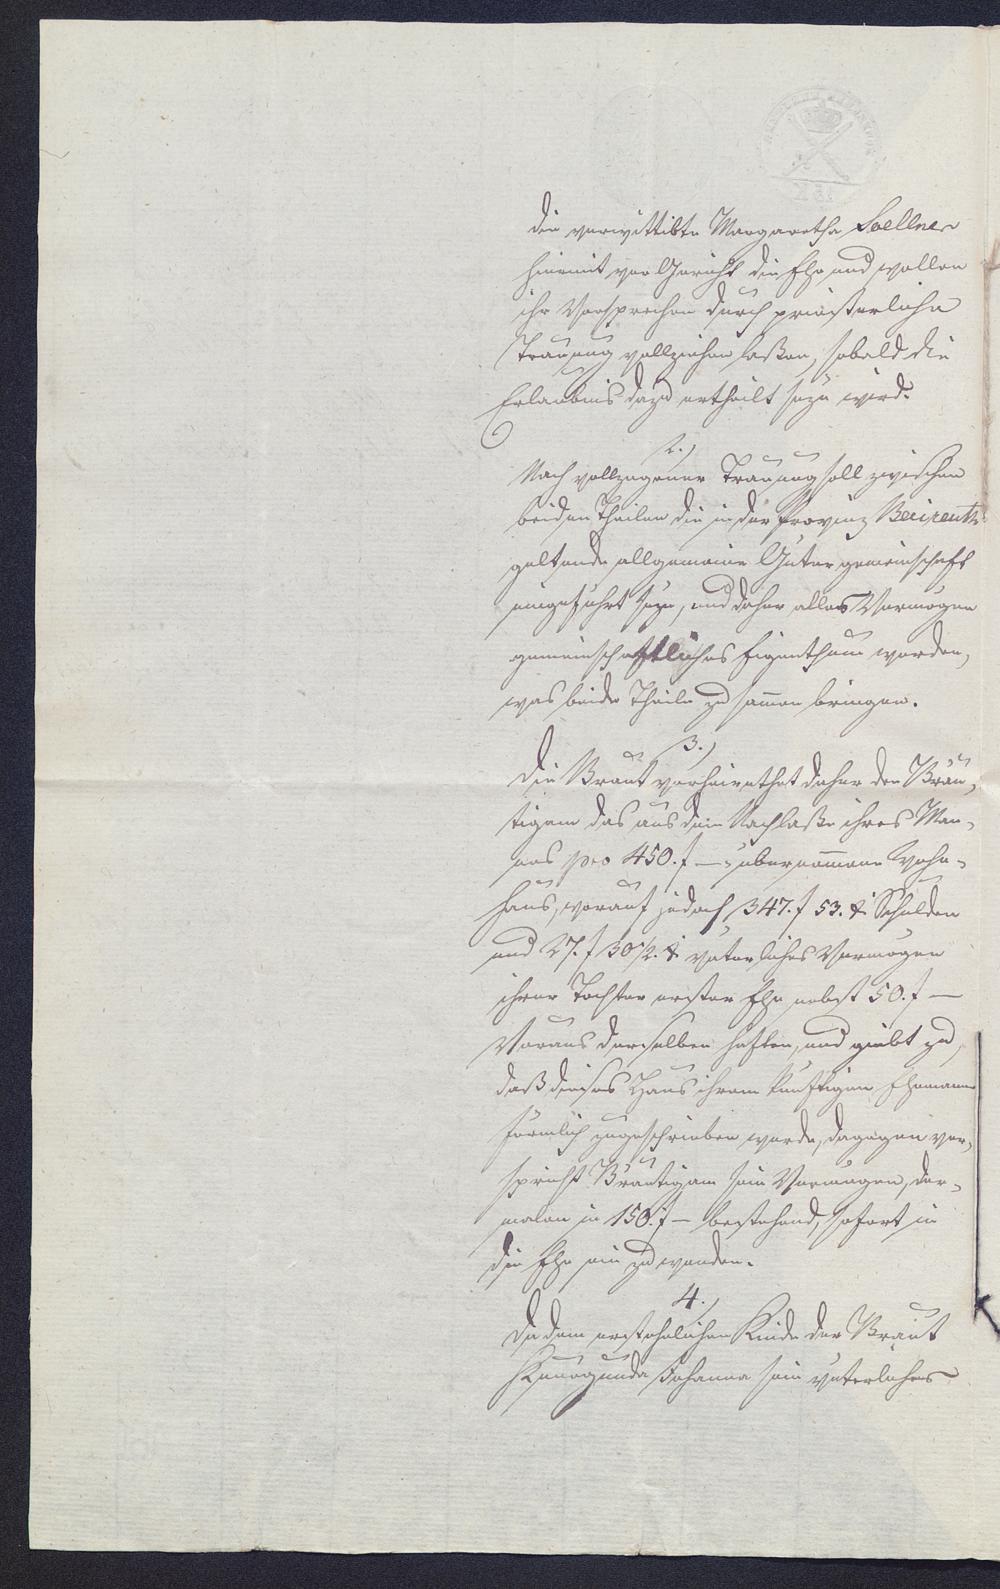 die verwittibte Margaretha Soellner
hiemit vor Gericht die Ehe und wollen
ihr Versprechen durch priesterliche
Trauung vollziehen laßen, sobald die
Erlaubnis dazu ertheilt seyn wird.
2.)
Nach vollzogener Trauung soll zwischen
beiden Theilen die in der Provinz Baireuth
geltende allgemeine Gütergemeinschaft
eingeführt seyn, und daher alles Vermögen
gemeinschaftliches Eigenthum werden,
was beide Theile zusammen bringen.
3.)
Die Braut verheirathet daher den Bräu-
tigam das aus dem Nachlaße ihres Man-
nes pro 450. f — übernommene Wohn-
haus, worauf jedoch 347. f 53. x Schulden
und 27. f 30 1/2. x väterliches Vermögen
ihrer Tochter erster Ehe nebst 50. f —
Voraus derselben haften, und giebt zu,
daß dieses Haus ihrem künftigen Ehemann
förmlich zugeschrieben werde, dagegen ver-
spricht Bräutigam sein Vermögen, der-
malen in 150. f — bestehend, sofort in
die Ehe ein zu wenden.
4.)
Da dem erstehelichen Kinde der Braut
Kunigunda Johanna sein väterliches